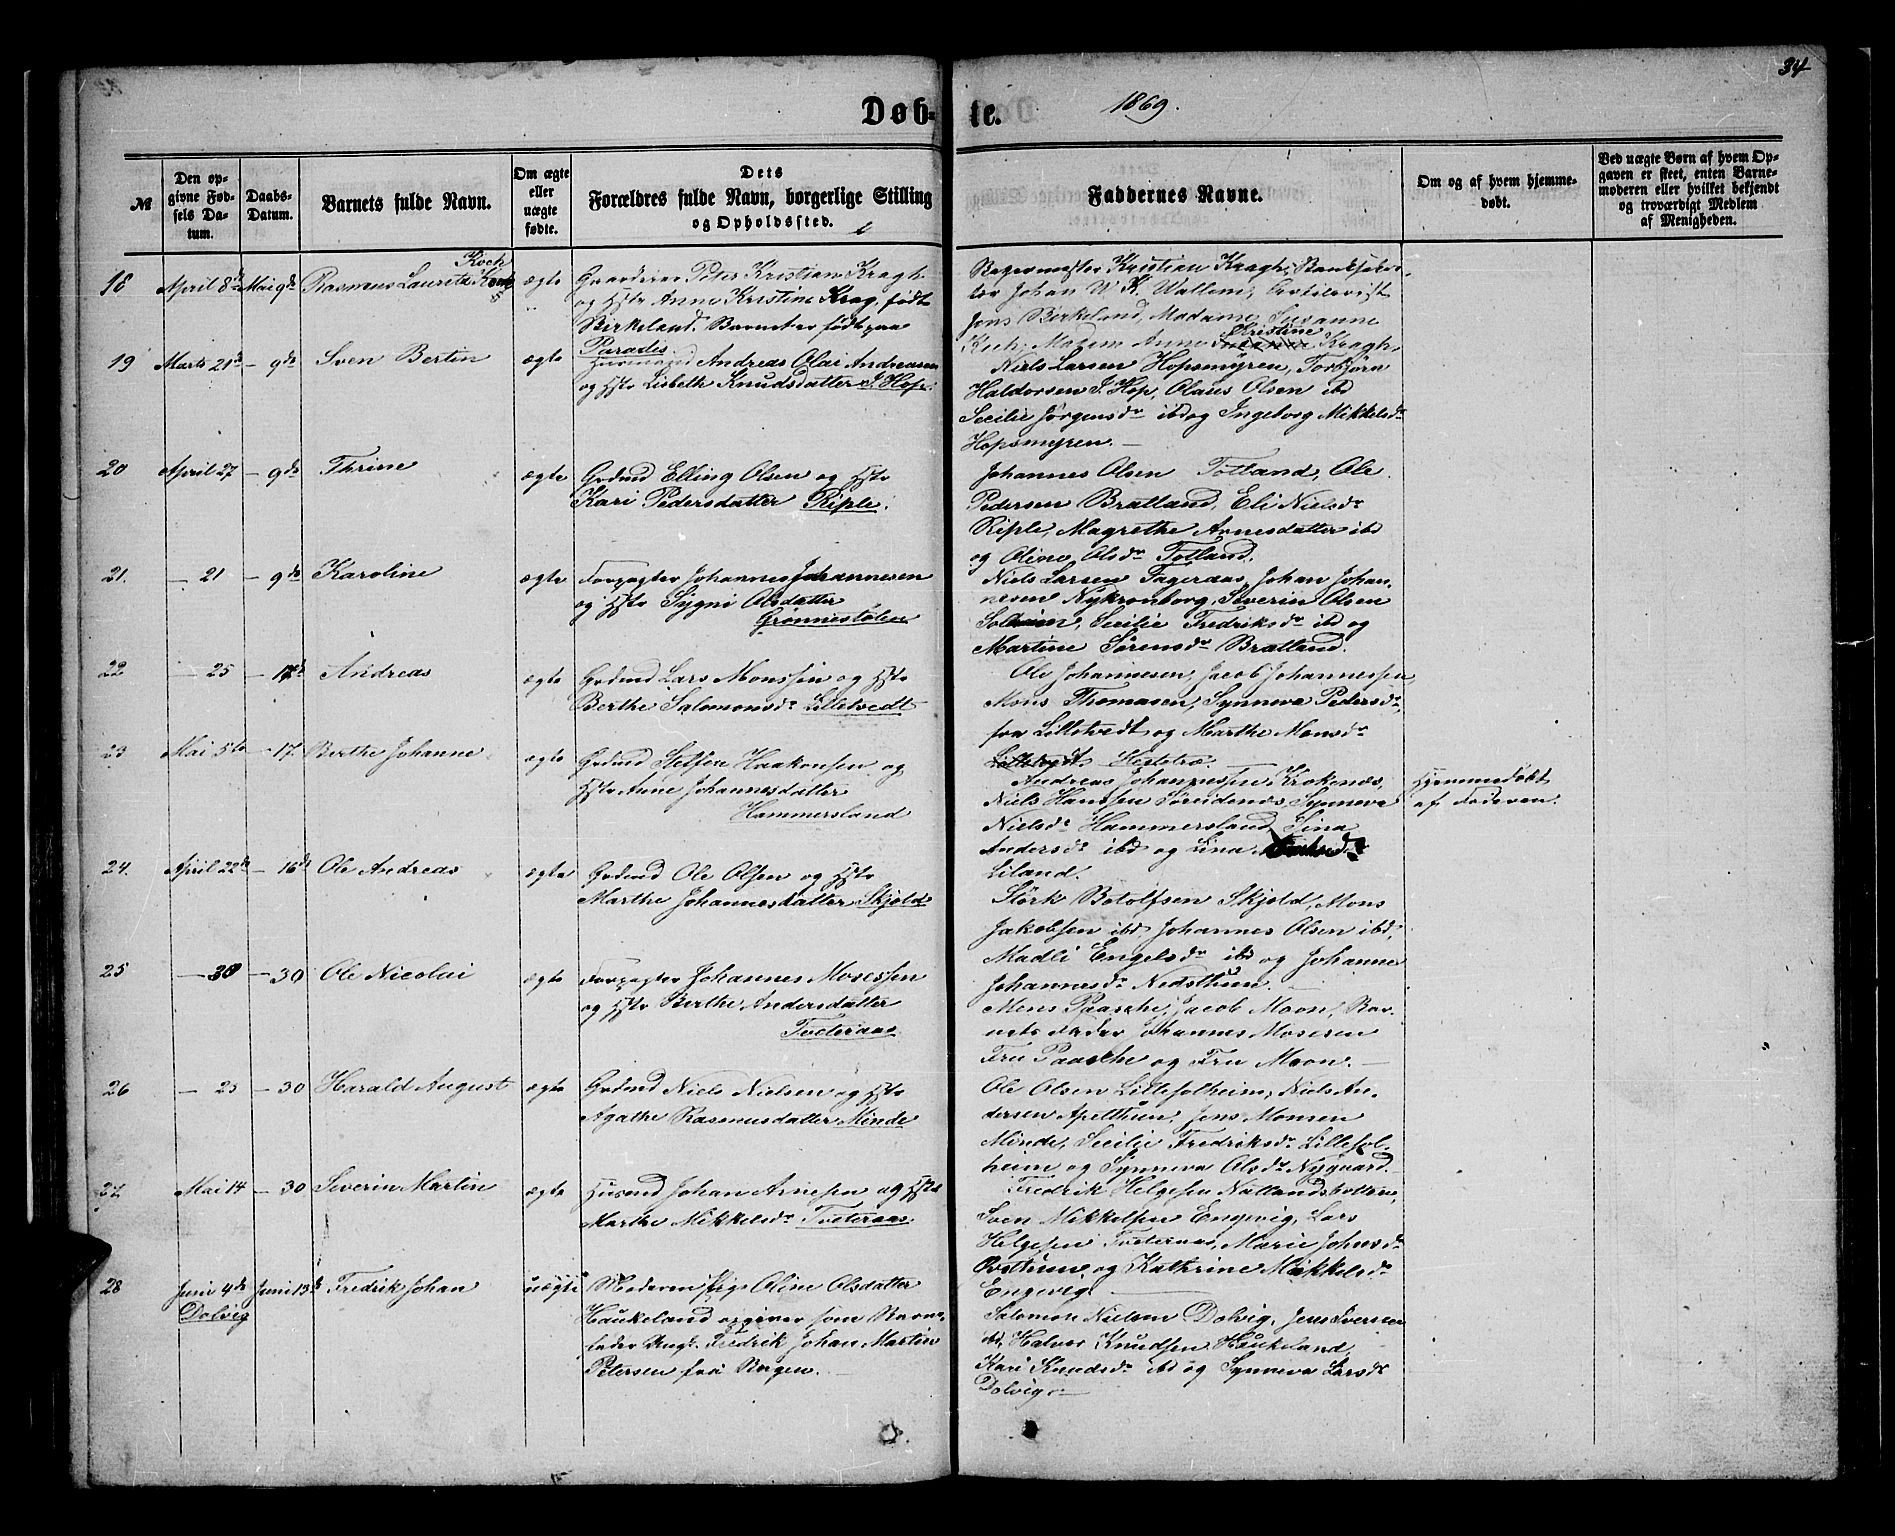 34
Døb- te. 1869.
№
Den op-
givne Fød-
sels Da-
tum.
Daabs-
Datum.
Barnets fulde Navn.
Om ægte
eller
uægte
fødte.
Dets
Forældres fulde Navn, borgerlige Stilling
og Opholdssted.
Faddernes Navne.
Om og af hvem hjemme-
døbt.
Ved uægte Børn af hvem Op-
gaven er skeet, enten Barne-
moderen eller hvilket bekjendt
og troværdigt Medlem
af Menigheden.
18 April 8de Mai 9de Rasmus Lauritz Koch ægte
Gaardeier Peter Kristian Kragh
og Hstr Anne Kristine Krag, født
Birkeland. Barnet er født paa
Paradis
Bagermester Kristian Kragh,
Johan W K. Wallem,
Jens Birkeland, Madame Susanne
Koch, Madam Anne Kristine Kragh.
19 Marts 21de – 9de Sven Bertin ægte
Huusmand Andreas Olai Andreasen
og Hstr Lisbeth Knudsdatter S. Hop.
Niels Larsen Hopsmyren, Torbjørn
Haldorsen S. Hop, Olaus Olsen ibd
Secilie Jørgensdr ibd og Ingeborg Mikkelsdr
Hopsmyren. –
20 April 27 – 9de Thrine ægte
Grdmd Elling Olsen og Hstr
Kari Pedersdatter Riple.
Johannes Olsen Totland, Ole
Pedersen Bratland, Eli Nielsdr
Riple, Magrethe Arnesdatter ibd
og Oline Olsdr Totland.
21. – 21 – 9de Karoline ægte
Forpagter Johannes Johannesen
og Hstr Sygni Olsdatter
Grønnestølen
Niels Larsen Fageraas, Johan Johan-
nesen Nykronborg, Severin Olsen
Solheim, Secilie Fredriksdr ibd og
Martine Sørensdr Bratland.
22 – 25 – 17de Andreas ægte
Grdmd Lars Monssen og Hstr
Berthe Salomonsdr Lilletvedt
Ole Johannesen, Jacob Johannessen
Mons Thomasen, Synneva Pedersdr
fra Lilletvedt og Marthe Monsdr
Hestetræ. –
23 Mai 5te – 17 Berthe Johanne ægte
Grdmd Steffen Haakonsen og
Hstr Anne Johannesdatter
Hammersland
Andreas Johannessen Krokenæs,
Niels Hanssen Søreidenæs, Synneva
Nielsdr Hammersland, Sina
Andersdr ibd og Lina
Liland.
Hjemmedøbt
af Faderen.
24. April 22de – 16de Ole Andreas ægte
Grdmd Ole Olsen og Hstr
Marthe Johannesdatter Skjold
Størk Botolfsen Skjold, Mons
Jakobsen ibd, Johannes Olsen ibd,
Madli Engelsdr ibd og Johanne
Johannesdr Nedsthun. –
25 – 30 – 30 Ole Nicolai ægte
Forpagter Johannes Mosessen
og Hstr Berthe Andersdatter
Tveteraas
Mons Paasche, Jacob Moon, Bar-
nets Fader Johannes Mosesen
Fru Paasche og Fru Moon. –
26 – 25 – 30 Harald August ægte
Grdmd Niels Nielsen og Hstr
Agathe Rasmusdatter Minde
Ole Olsen Lillesolheim, Niels An-
dersen Apelthun, Jens Monsen
Minde, Secilie Fredriksdr Lillesol-
heim og Synneva Olsdr Nygaard.
27 Mai 14 – 30 Severin Martin ægte
Husmd Johan Arnesen og Hstr
Marthe Mikkelsdr Tveteraas.
Fredrik Helgesen Natlandsbotten,
Sven Mikkelsen Engevig, Lars
Helgesen Tveteraas, Marie Johnsdr
og Kathrine Mikkelsdr
Engevig.
28 Juni 4de Dolvig Juni 13de Fredrik Johan uægte
Moderen Pige Oline Olsdatter
Haukeland opgiver som Barne-
fader Ungk. Fredrik Johan Martin
Petersen fra Bergen. –
Salomon Nielsen Dolvig, Jens Iversen
ibd, Halvor Knudsen Haukeland,
Kari Knudsdr ibd og Synneva Larsdr
Dolvig. –